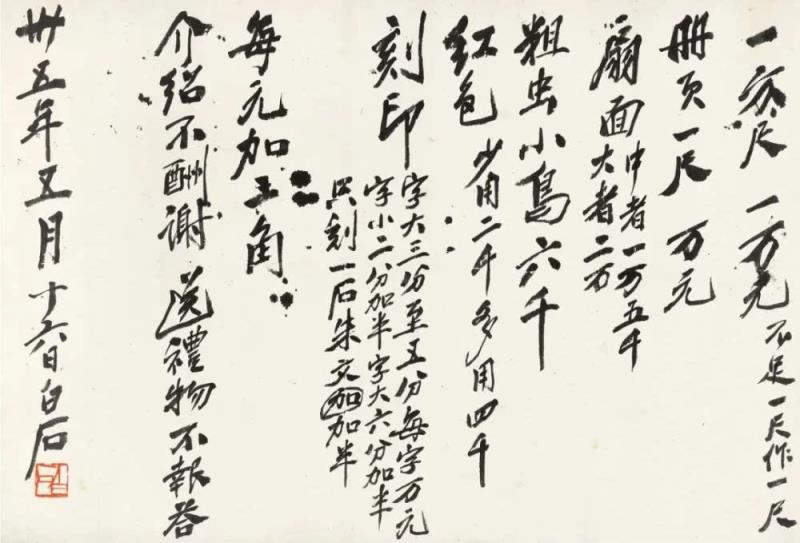 一方尺 一万元 不足一尺作一尺
冊页一尺 万元
扇面 中者一万五千
大者二万
粗虫小鳥六千
红色 少用二千多用四千
刻印 字大三分至五分每字万元
字小二分加半字大六分加半
只刻一石朱文加加半
每元加角
介紹不酬謝 送禮物不報答
卅五年五月十六日白石